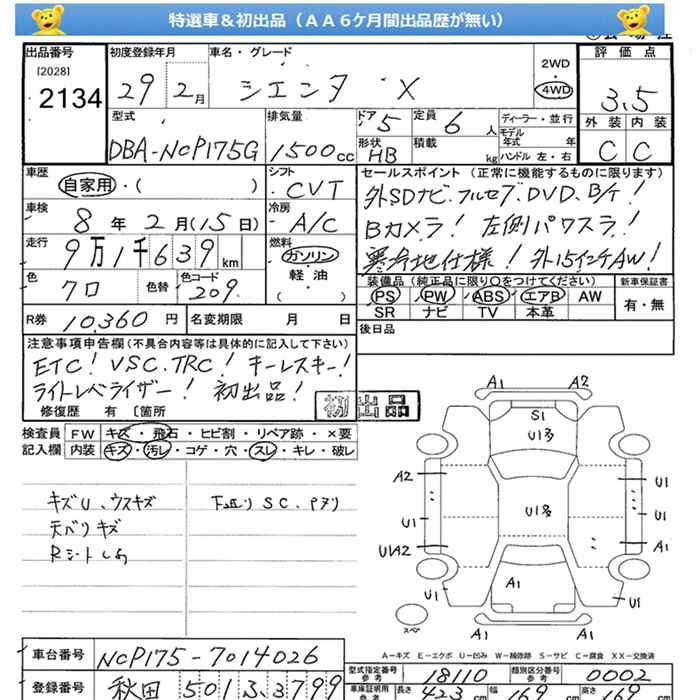 特選車＆初出品（ＡＡ６ケ月間出品歴が無い）
出品番号 初度登録年月 車名・グレード 評価点
[2028]
2134
29 2月 シエンタ X
2WD
・
4WD
3.5
外装 内装
C C
型式 排気量 ドア 定員 ディーラー・並行
DBA-NCP175G 1500cc 5 6人
モデル年式 年
形状 積載
HB kg
ハンドル 左・右
車歴 シフト セールスポイント (正常に機能するものに限ります)
自家用・( ) CVT
外SDナビ、フルセブ、DVD、B/T!
車検 冷房
8年 2月(15日) A/C
Bカメラ! 左側パワスラ!
走行 燃料
9万1千639km ガソリン
寒冷地仕様! 外15インチAW!
軽油
( )
色 色替 色コード
クロ 209
装備品 (純正品に限り○をつけてください) 新車保証書
PS PW ABS エアB AW
SR ナビ TV 本革
有・無
R券 10,360円 名変期限 月 日
後日品
注意事項申告欄(不具合内容等は具体的に記入して下さい)
ETC! VSC.TRC! キーレスキー!
ライトレベライザー! 初出品!
修復歴 有 〔箇所
初出品
検査員 FW キズ・飛石・ヒビ割・リペア跡・×要
記入欄 内装 キズ・汚レ・コゲ・穴・スレ・キレ・破レ
キズU、ウスキズ
天バリキズ
Rシートしみ
下廻り SC、Pヌリ
A1 A2
S1
U1多
A2 U1
U1 U1多 U1
U1A2 A1
A1
U1 U1
スペア
A1 A1
A－キズ E－エクボ U－凹み W－補修跡 S－サビ C－腐食 XX－交換済
車台番号 NCP175-7014026
型式指定番号 参考 18110 類別区分番号 参考 0002
登録番号 秋田 501 3 3799
車庫証明用 参考 長さ 423 幅 169 高さ